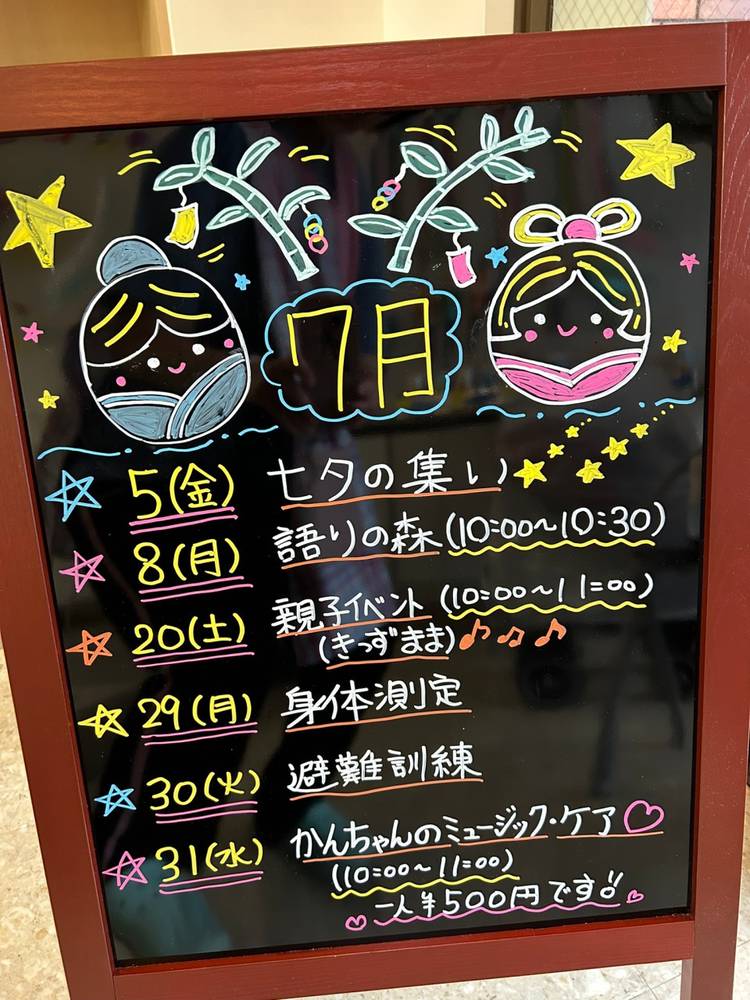 7月
5(金) 七夕の集い
8(月) 語りの森(10:00~10:30)
20(土) 親子イベント(10:00~11:00)
(きっずまま)
29(月) 身体測定
30(火) 避難訓練
31(水) かんちゃんのミュージック・ケア
(10:00~11:00)
一人¥500円です!!